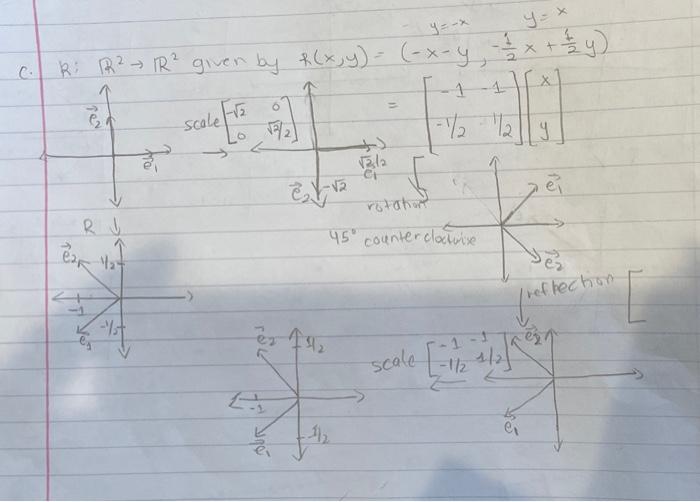 y=-x y=x
c. R: ℝ² → ℝ² given by R(x,y) = (-x-y, -1/2 x + 1/2 y)
= [-1 -1; -1/2 1/2] [x; y]
e⃗₂
e⃗₁
scale [-√2 0; 0 √2/2]
√2/2
e⃗₁
e⃗₂ -√2
rotation [
45° counterclockwise
e⃗₁
e⃗₂
R ↓
e⃗₂ 1/2
-1
-1/2
e⃗₁
reflection [
e⃗₂ 1/2
-1
-1/2
e⃗₁
scale [-1 -1; -1/2 1/2]
e⃗₂
e₁